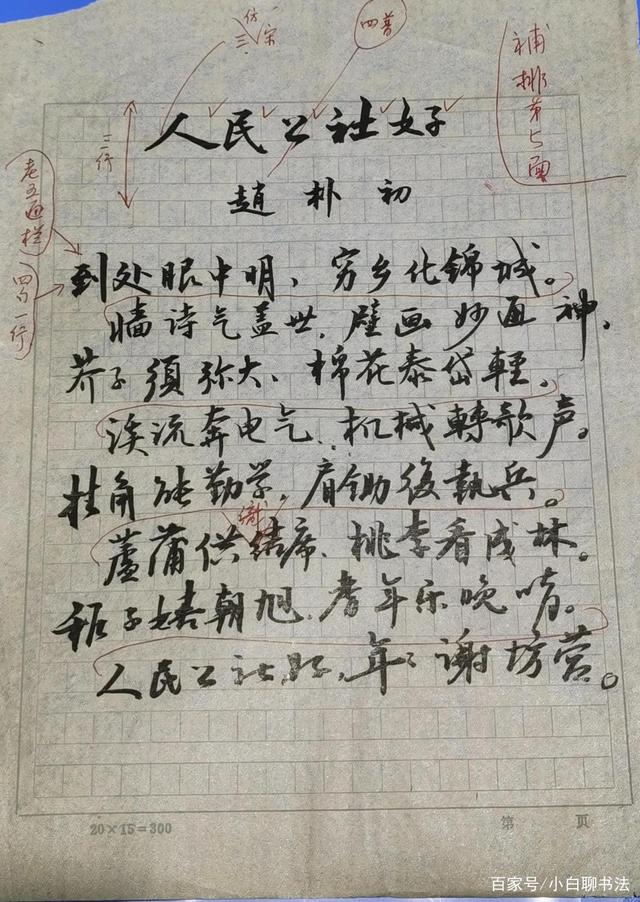 仿
三、宋
四普
補排第5面
三行
老五通栏
四句一行
人民公社好
趙朴初
到处眼中明，穷乡化锦城。
墙诗气盖世，壁画妙通神，
芥子須弥大、棉花泰岱輕。
溪流奔电气、机械轉歌声。
挂角能勤学，肩锄復執兵。
織
蘆蒲供结席、桃李看成林。
稚子嬉朝旭、耆年乐晚晴。
人民公社好，年々謝坊营。
20×15=300
第 页
百家号/小白聊书法